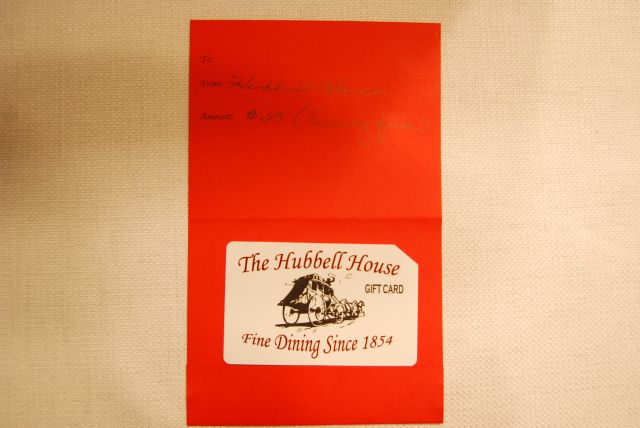 To
From: Hubbell House
Amount: $25 (Twenty five)
The Hubbell House
GIFT CARD
Fine Dining Since 1854